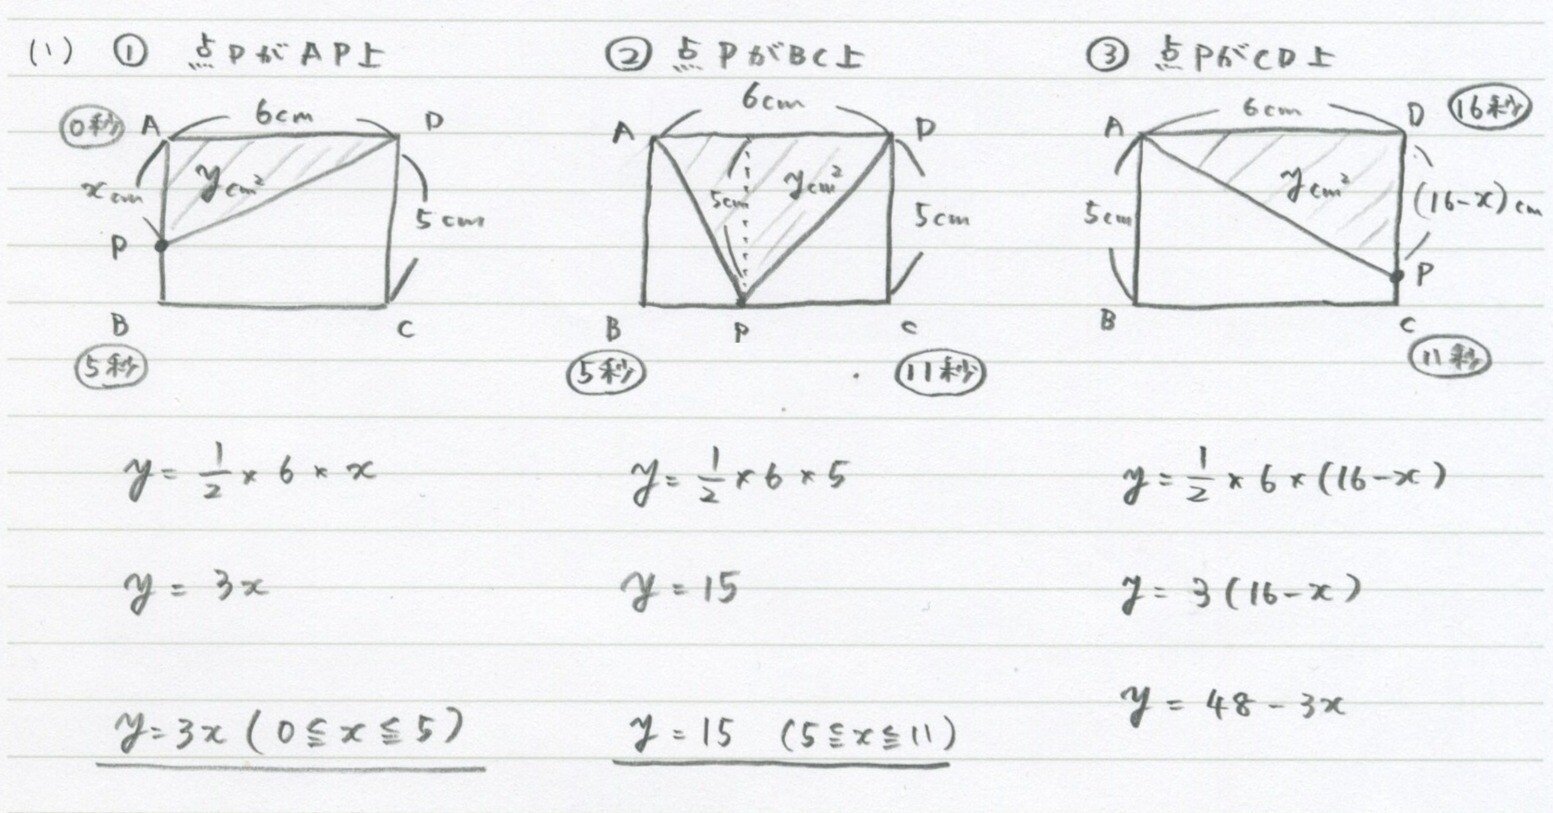 (1) ① 点PがAP上
0秒 A 6cm D
xcm ycm²
P 5cm
B C
5秒
y = 1/2 × 6 × x
y = 3x
y = 3x (0 ≦ x ≦ 5)
② 点PがBC上
6cm
A D
5cm ycm²
5cm
B P C
5秒 11秒
y = 1/2 × 6 × 5
y = 15
y = 15 (5 ≦ x ≦ 11)
③ 点PがCD上
A 6cm D 16秒
ycm² (16-x)cm
5cm
P
B C
11秒
y = 1/2 × 6 × (16-x)
y = 3(16-x)
y = 48 - 3x